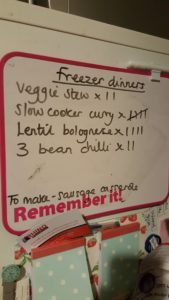 Freezer dinners
Veggie stew x 11
Slow cooker curry x 1111
Lentil bolognese x 1111
3 bean chilli x 11
To make - sausage casserole
Remember it!